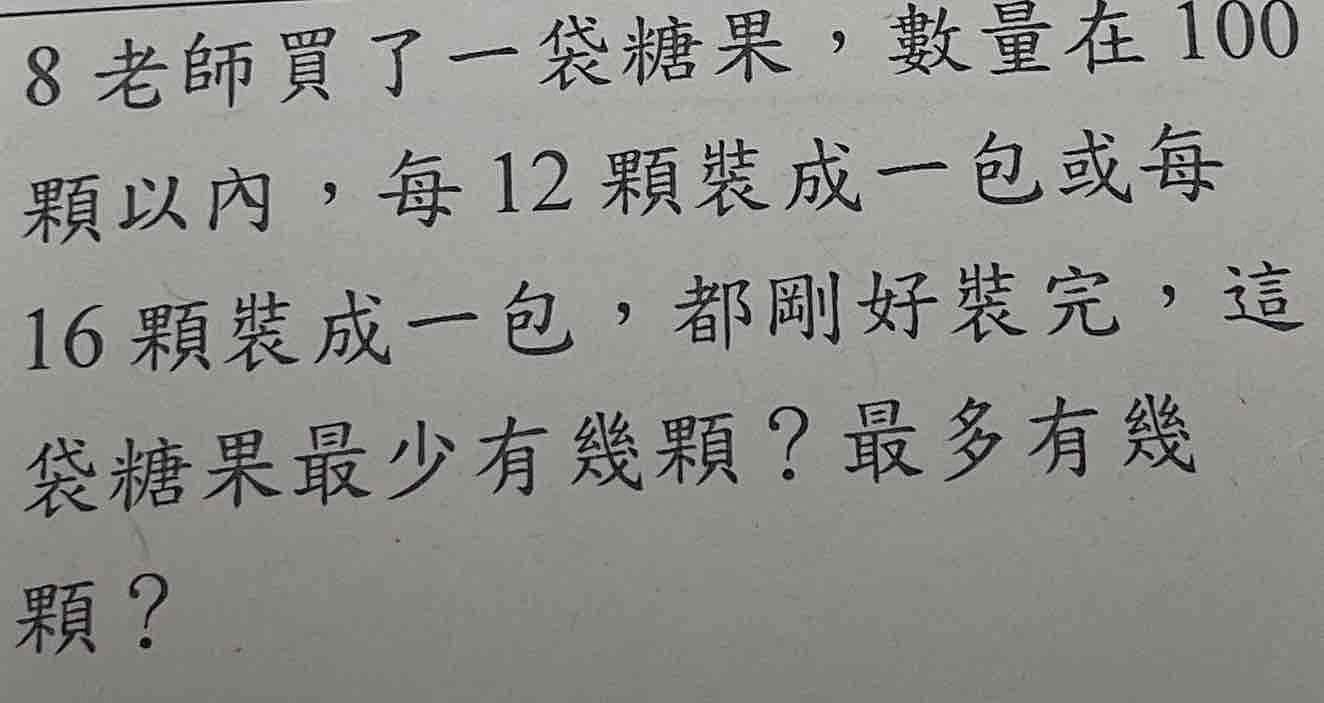 8 老師買了一袋糖果，數量在 100
顆以內，每 12 顆裝成一包或每
16 顆裝成一包，都剛好裝完，這
袋糖果最少有幾顆？最多有幾
顆？